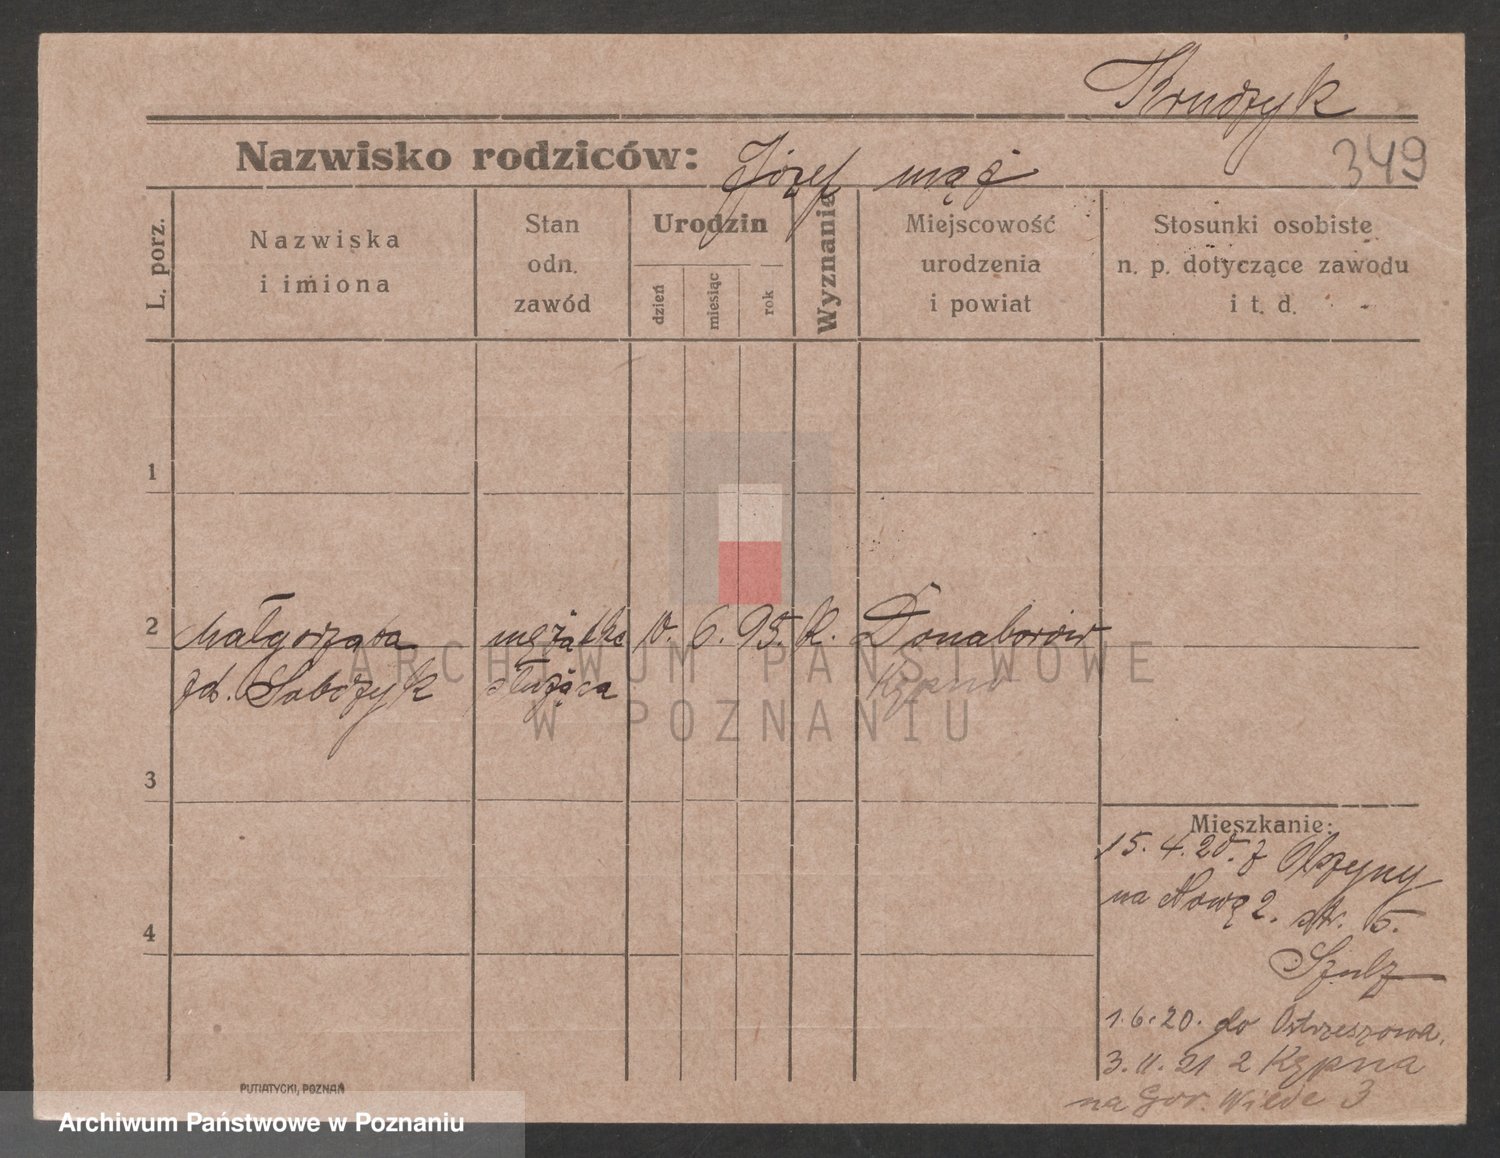 Krudzyk
349
Nazwisko rodziców: Józef mąż
L. porz.
Nazwiska
i imiona
Stan
odn.
zawód
Urodzin
dzień
miesiąc
rok
Wyznanie
Miejscowość
urodzenia
i powiat
Stosunki osobiste
n. p. dotyczące zawodu
i t. d.
1
2
Małgorzata mężatka 10. 6. 95. k. Donaborów
zd. Sobczyk służąca Kępno
3
4
Mieszkanie:
15. 4. 20. z Olszyny
na Nową 2. str. 5.
Szulz
1. 6. 20. do Ostrzeszowa.
3. 11. 21 z Kępna
na Gór. Wilde 3
PUTIATYCKI, POZNAŃ
ARCHIWUM PAŃSTWOWE
W POZNANIU
Archiwum Państwowe w Poznaniu